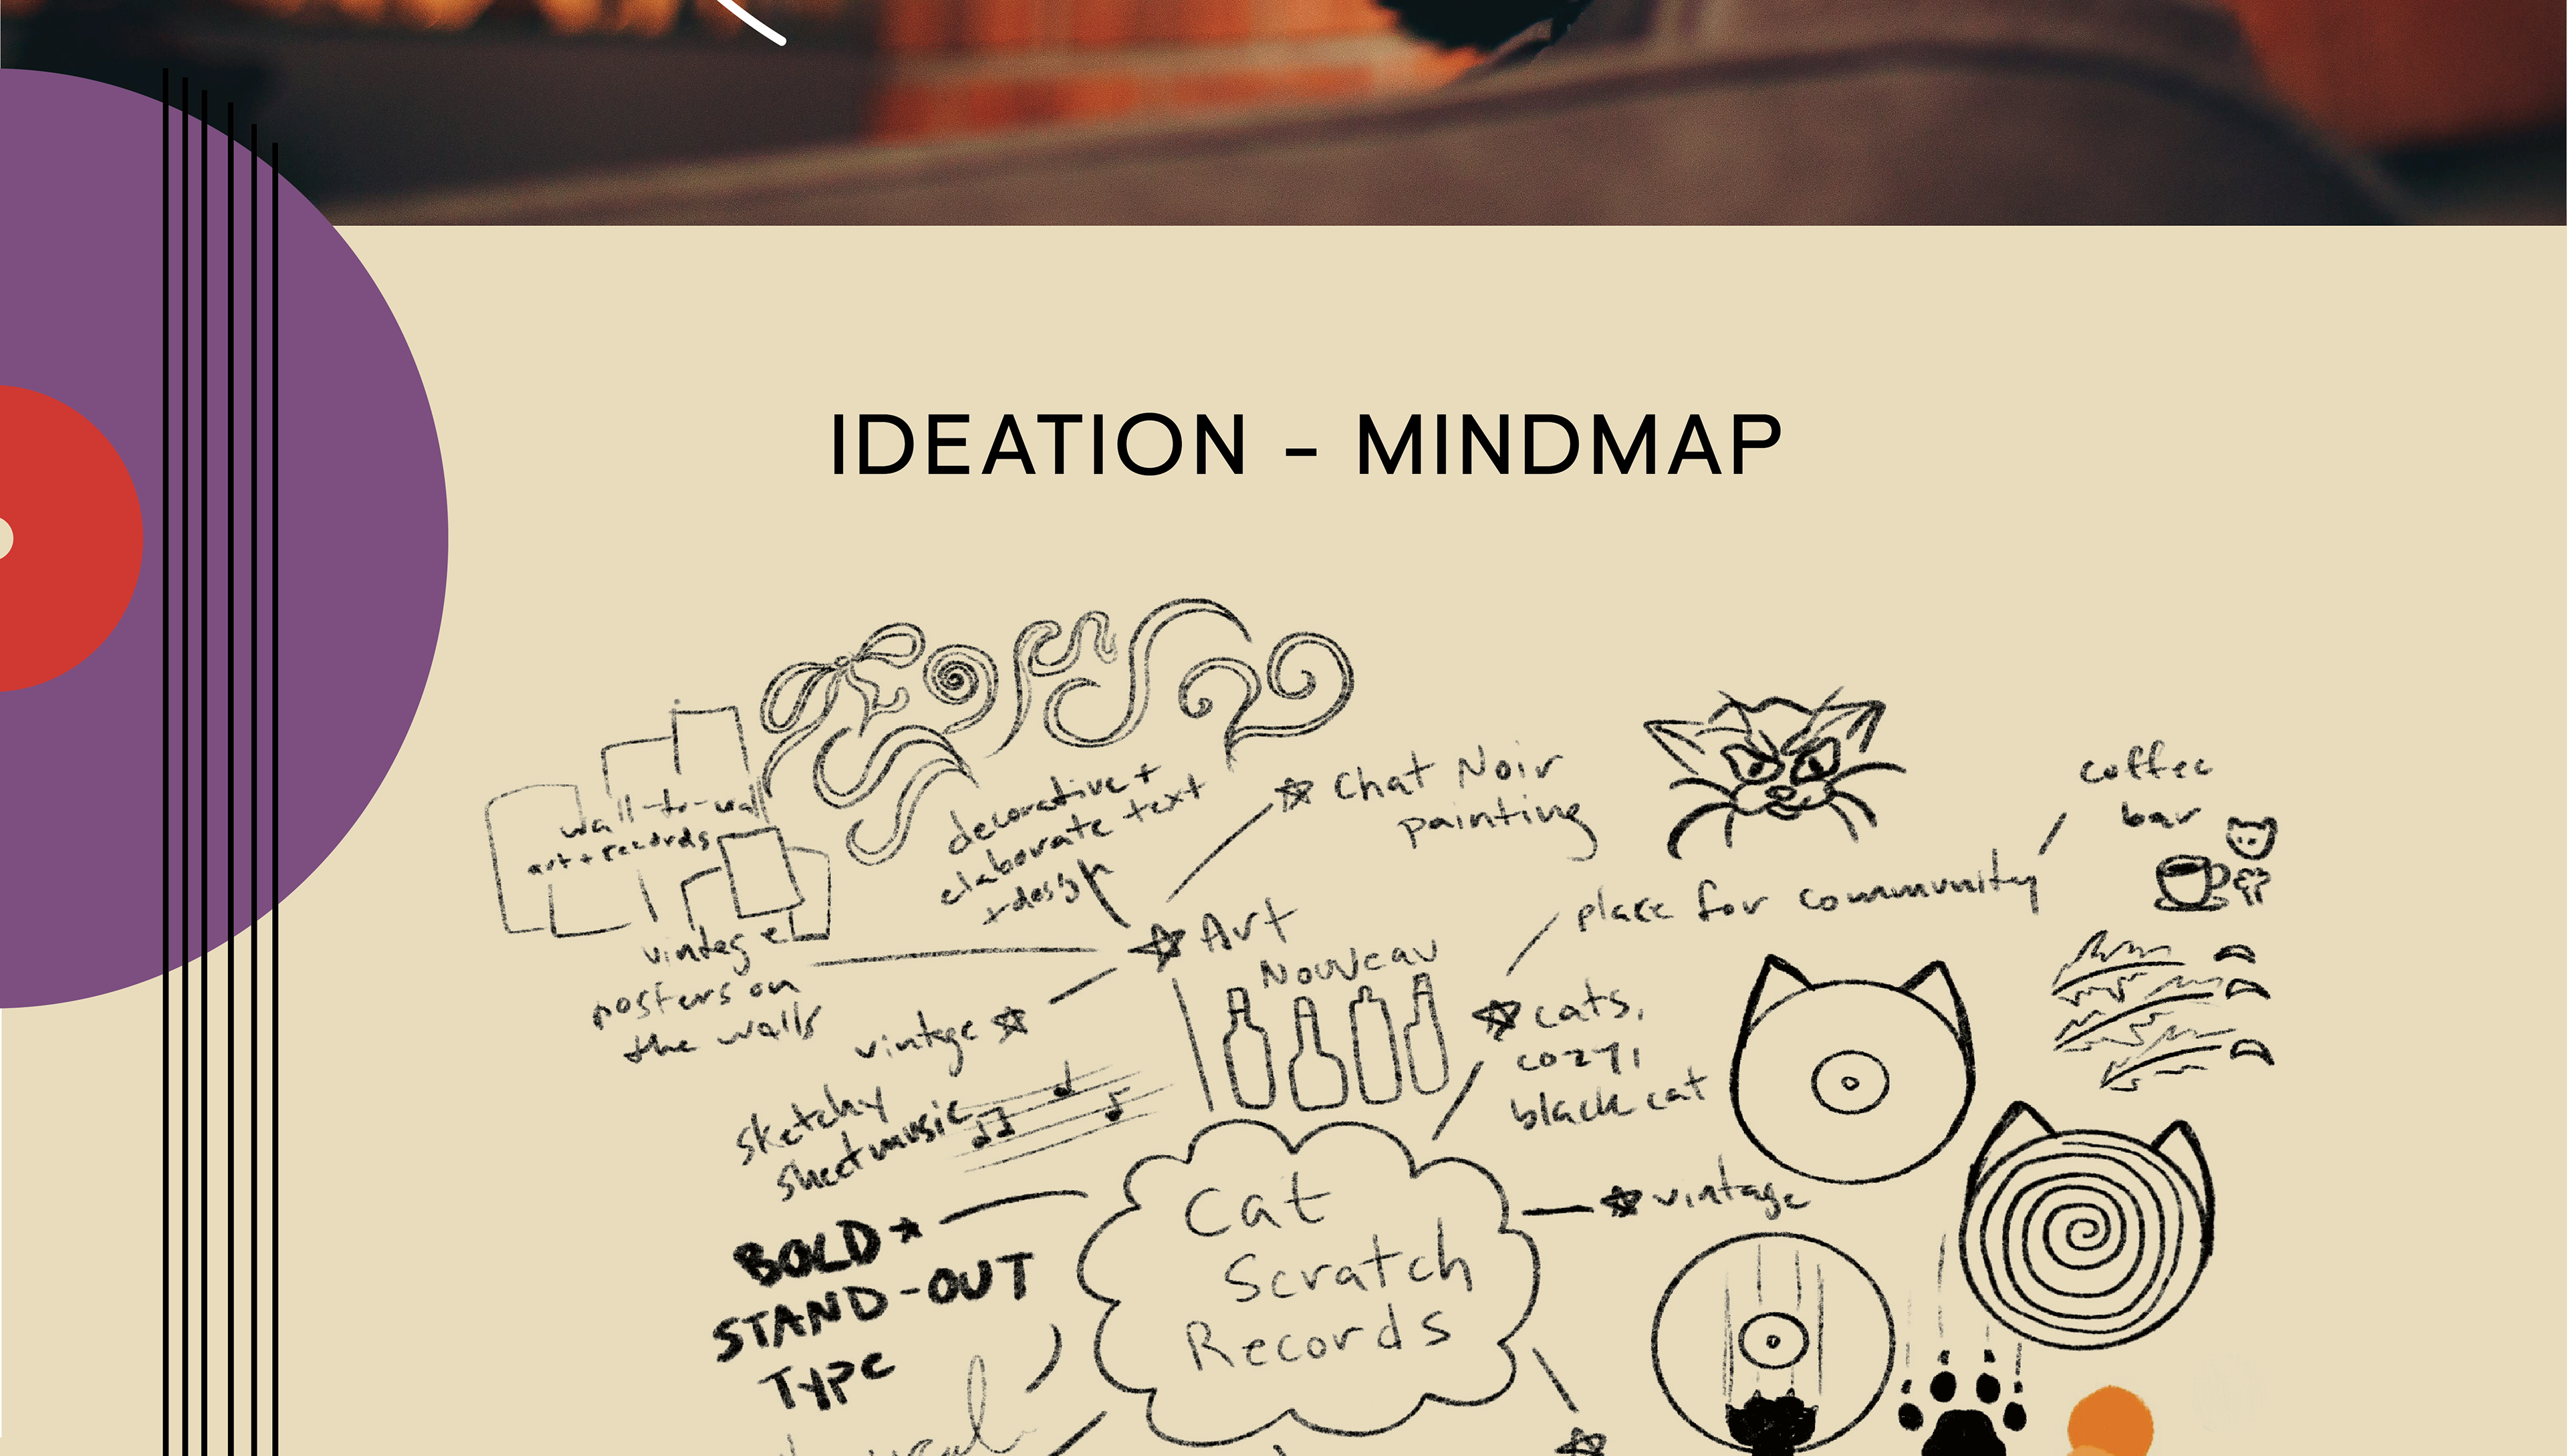 IDEATION - MINDMAP
wall-to-wall
art + records
decorative +
elaborate text
+ design
★ Chat Noir
painting
coffee
bar
place for community
★ Art
Nouveau
vintage
posters on
the walls
vintage ★
★ cats,
cozy,
black cat
sketchy
sheet music
★ vintage
BOLD ★
STAND-OUT
TYPE
Cat
Scratch
Records